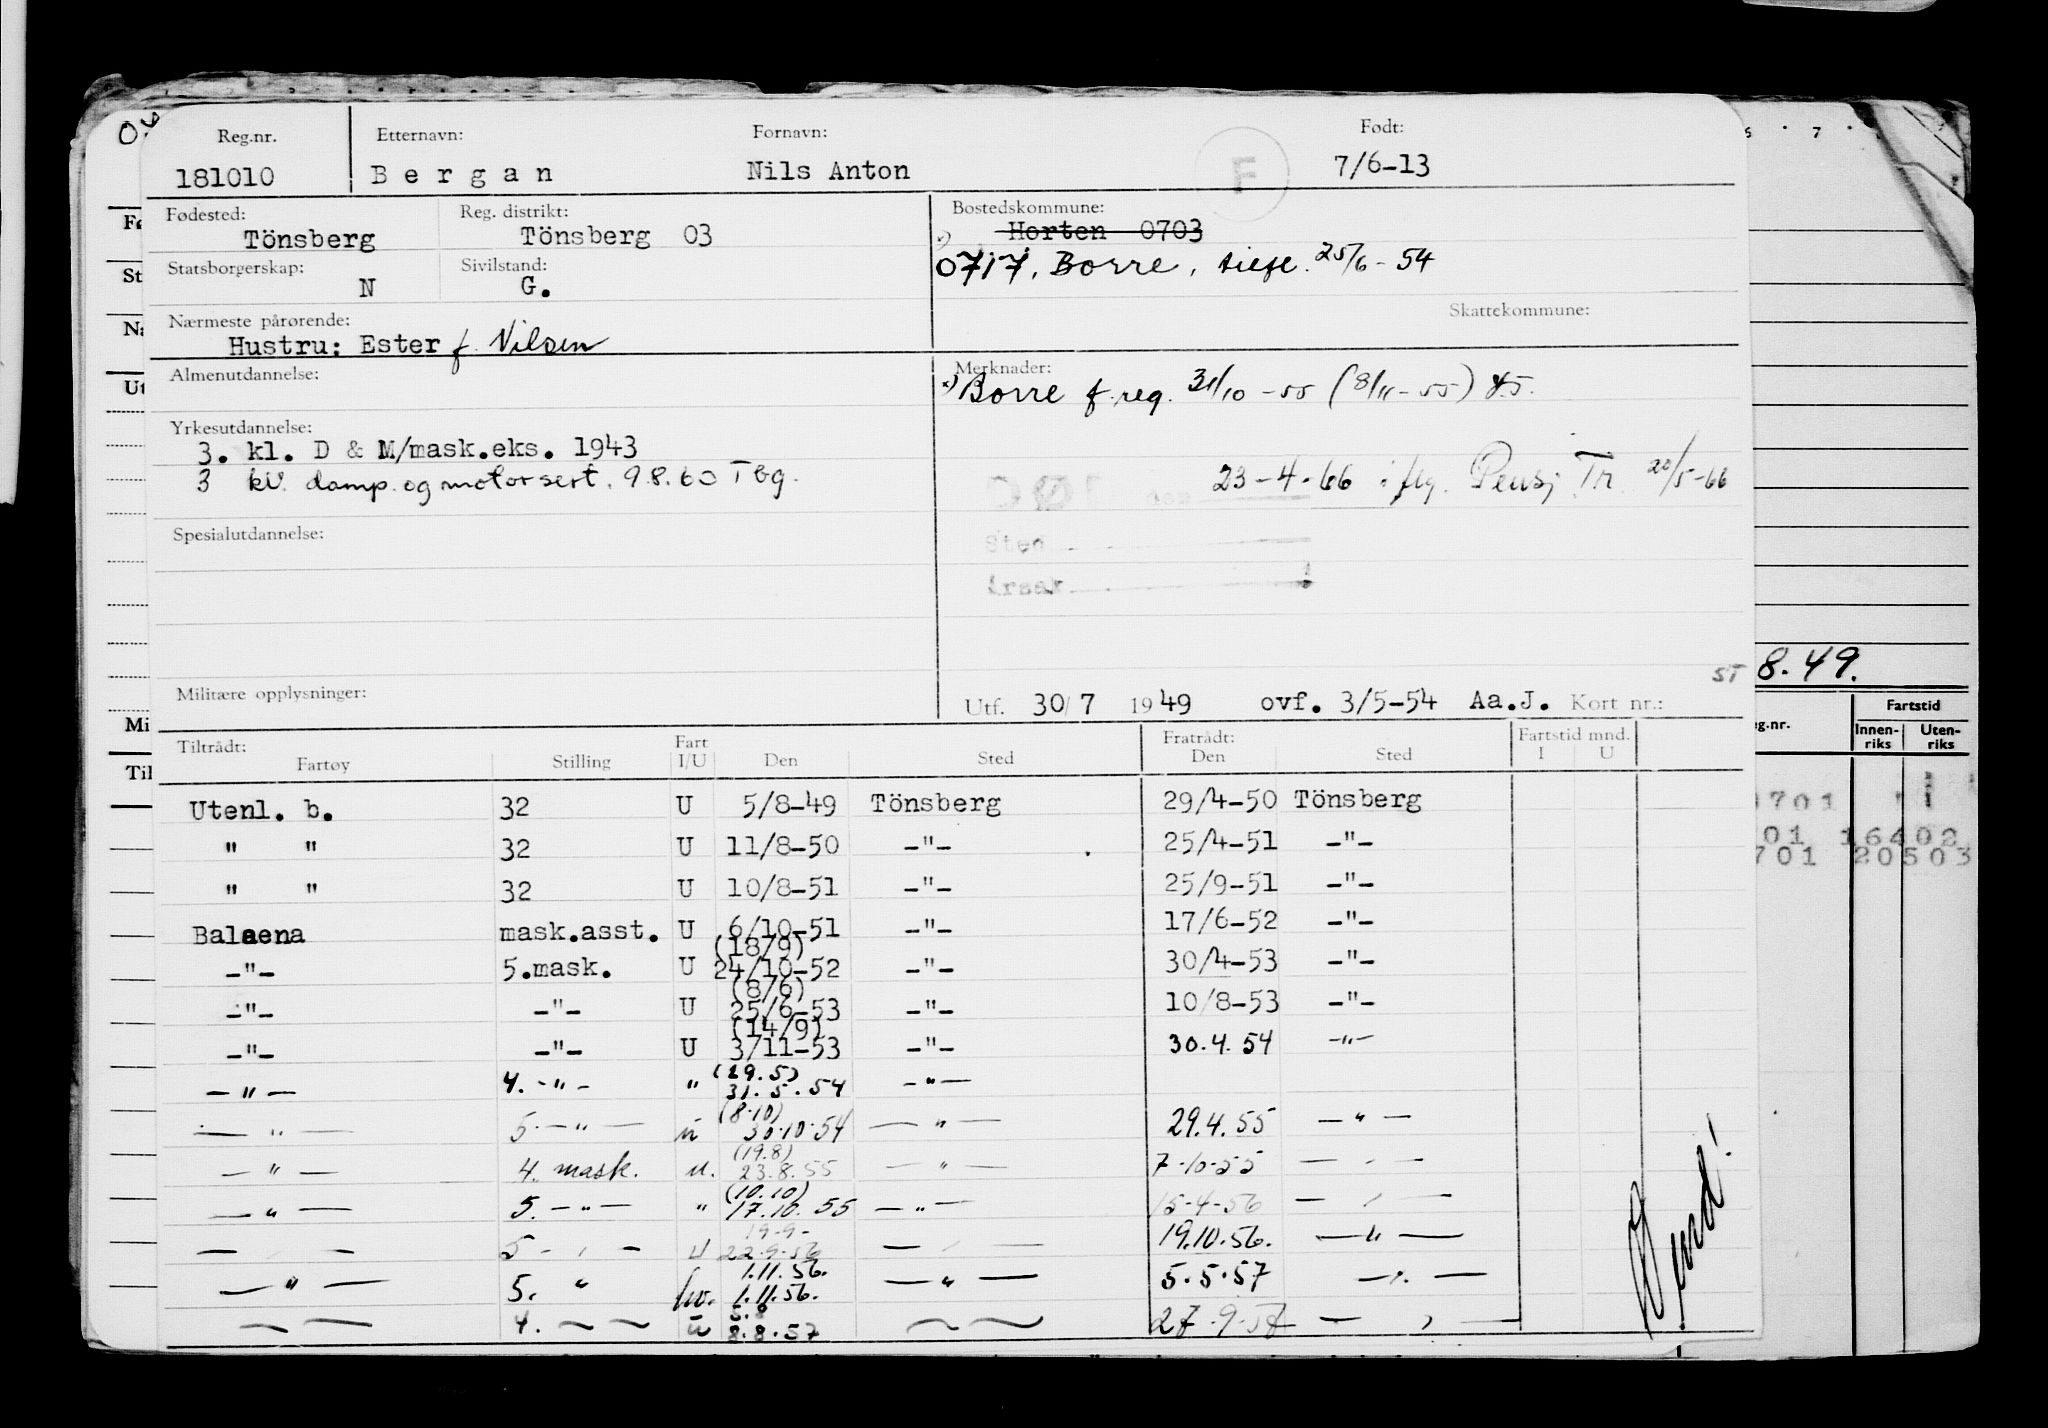 Reg.nr. Etternavn: Fornavn: Født:
181010 Bergan Nils Anton F 7/6-13
Fødested: Reg. distrikt: Bostedskommune:
Tönsberg Tönsberg 03 Horten 0703
Statsborgerskap: Sivilstand: 0717, Borre, 25/6-54
N G.
Skattekommune:
Nærmeste pårørende:
Hustru: Ester f. Nilsen
Almenutdannelse: Merknader:
x) Borre f.reg. 31/10-55 (8/11-55)
Yrkesutdannelse:
3. kl. D & M/mask.eks. 1943
3 kl. damp. og motorsert. 9.8.60 Tbg.
DØD den 23-4-66 iflg. Pensj Tr. 20/5-66
Spesialutdannelse:
Sted
Årsak
ST 8.49.
Militære opplysninger: Utf. 30/7 1949 ovf. 3/5-54 Aa.J. Kort nr.:
Tiltrådt: Fratrådt: Fartstid mnd.
Fartøy Stilling Fart I/U Den Sted Den Sted I U
g.nr. Fartstid Innen-riks Uten-riks
Utenl. b. 32 U 5/8-49 Tönsberg 29/4-50 Tönsberg
" " 32 U 11/8-50 -"- 25/4-51 -"-
" " 32 U 10/8-51 -"- 25/9-51 -"-
Balaena mask.asst. U 6/10-51 -"- 17/6-52 -"-
-"- 5.mask. U (18/9) 24/10-52 -"- 30/4-53 -"-
-"- -"- U (8/6) 25/6-53 -"- 10/8-53 -"-
-"- -"- U (14/9) 3/11-53 -"- 30.4.54 -"-
-"- 4. -"- " (29.5) 31.5.54 -"-
-"- 5. -"- u (8.10) 30.10.54 -"- 29.4.55 -"-
-"- 4. mask. u. (19.8) 23.8.55 -"- 7-10-55 -"-
-"- 5. -"- " (10.10) 17.10.55 -"- 15-4-56 -"-
-"- 5 -"- U 19-9- 22-9-56 -"- 19.10.56. -"-
-"- 5. " 1.11.56. 1.11.56. -"- 5.5.57 -"-
-"- 4. -"- u 5.8 8.8.57 -"- -"-
701
01 16402
701 20503